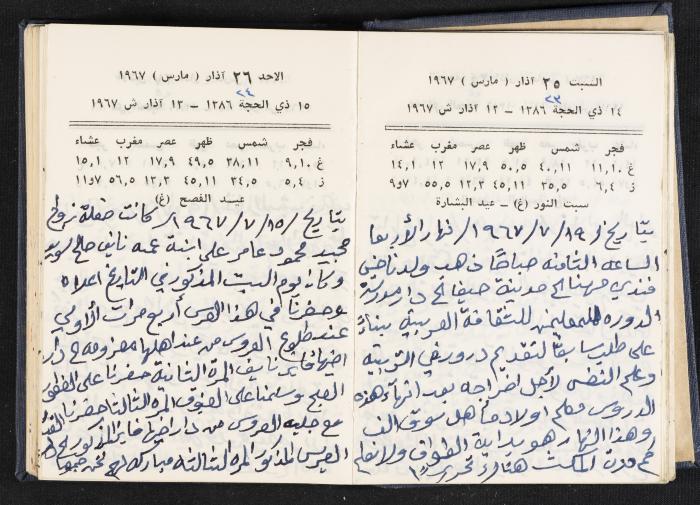 السبت ٢٥ آذار ( مارس ) ١٩٦٧
٢٣
١٤ ذي الحجة ١٣٨٦ – ١٢ آذار ش ١٩٦٧
فجر شمس ظهر عصر مغرب عشاء
غ ١٠,١١ ٤٠,١١ ٥٠,٥ ١٧,٩ ١٢ ١٤,١
ز ٦,٤ ٣٥,٥ ٤٥,١١ ١٢,٣ ٥٥,٥ ٩و٧
سبت النور (غ) – عيد البشارة
بتاريخ ١٩/٧/١٩٦٧ نهار الأربعا
الساعه الثامنه صباحًا ذهب ولدنا
فندي مهنا الى مدينة حيفا الى دار
الدوره للمعلمين للثقافة العربية بناءً
على طلب سابقًا لتقديم دروس في التربية
وعلم النفس لأجل بعد انهاء هذه
الدروس معلم اولاد سوق
وهذا النهار هو بداية ولا نعلم
كم مدت المكث هناك تحريرًا
الاحد ٢٦ آذار ( مارس ) ١٩٦٧
٢٤
١٥ ذي الحجة ١٣٨٦ – ١٣ آذار ش ١٩٦٧
فجر شمس ظهر عصر مغرب عشاء
غ ٩,١٠ ٣٨,١١ ٤٩,٥ ١٧,٩ ١٢ ١٥,١
ز ٥,٤ ٣٤,٥ ٤٥,١١ ١٢,٣ ٥٦,٥ ١١و٧
عيد الفصح (غ)
بتاريخ ١٥/٧/١٩٦٧ كانت حفلة زواج
محمود عامر على ابنة عمه نايف صالح
وكان يوم السبت المذكور في التاريخ اعلاه
وحضرنا في هذا العرس أربع مرات الأولى
عند طلوع العروس من عند اهلها الى دار
نايف المرة الثانية حضرنا على الفطور
الصبح وسلمنا على الضيوف المرة الثالثة حضرنا
مع العروس من دار فايز المذكور الى
العريس المذكور المرة الثالثه مباركه لهم